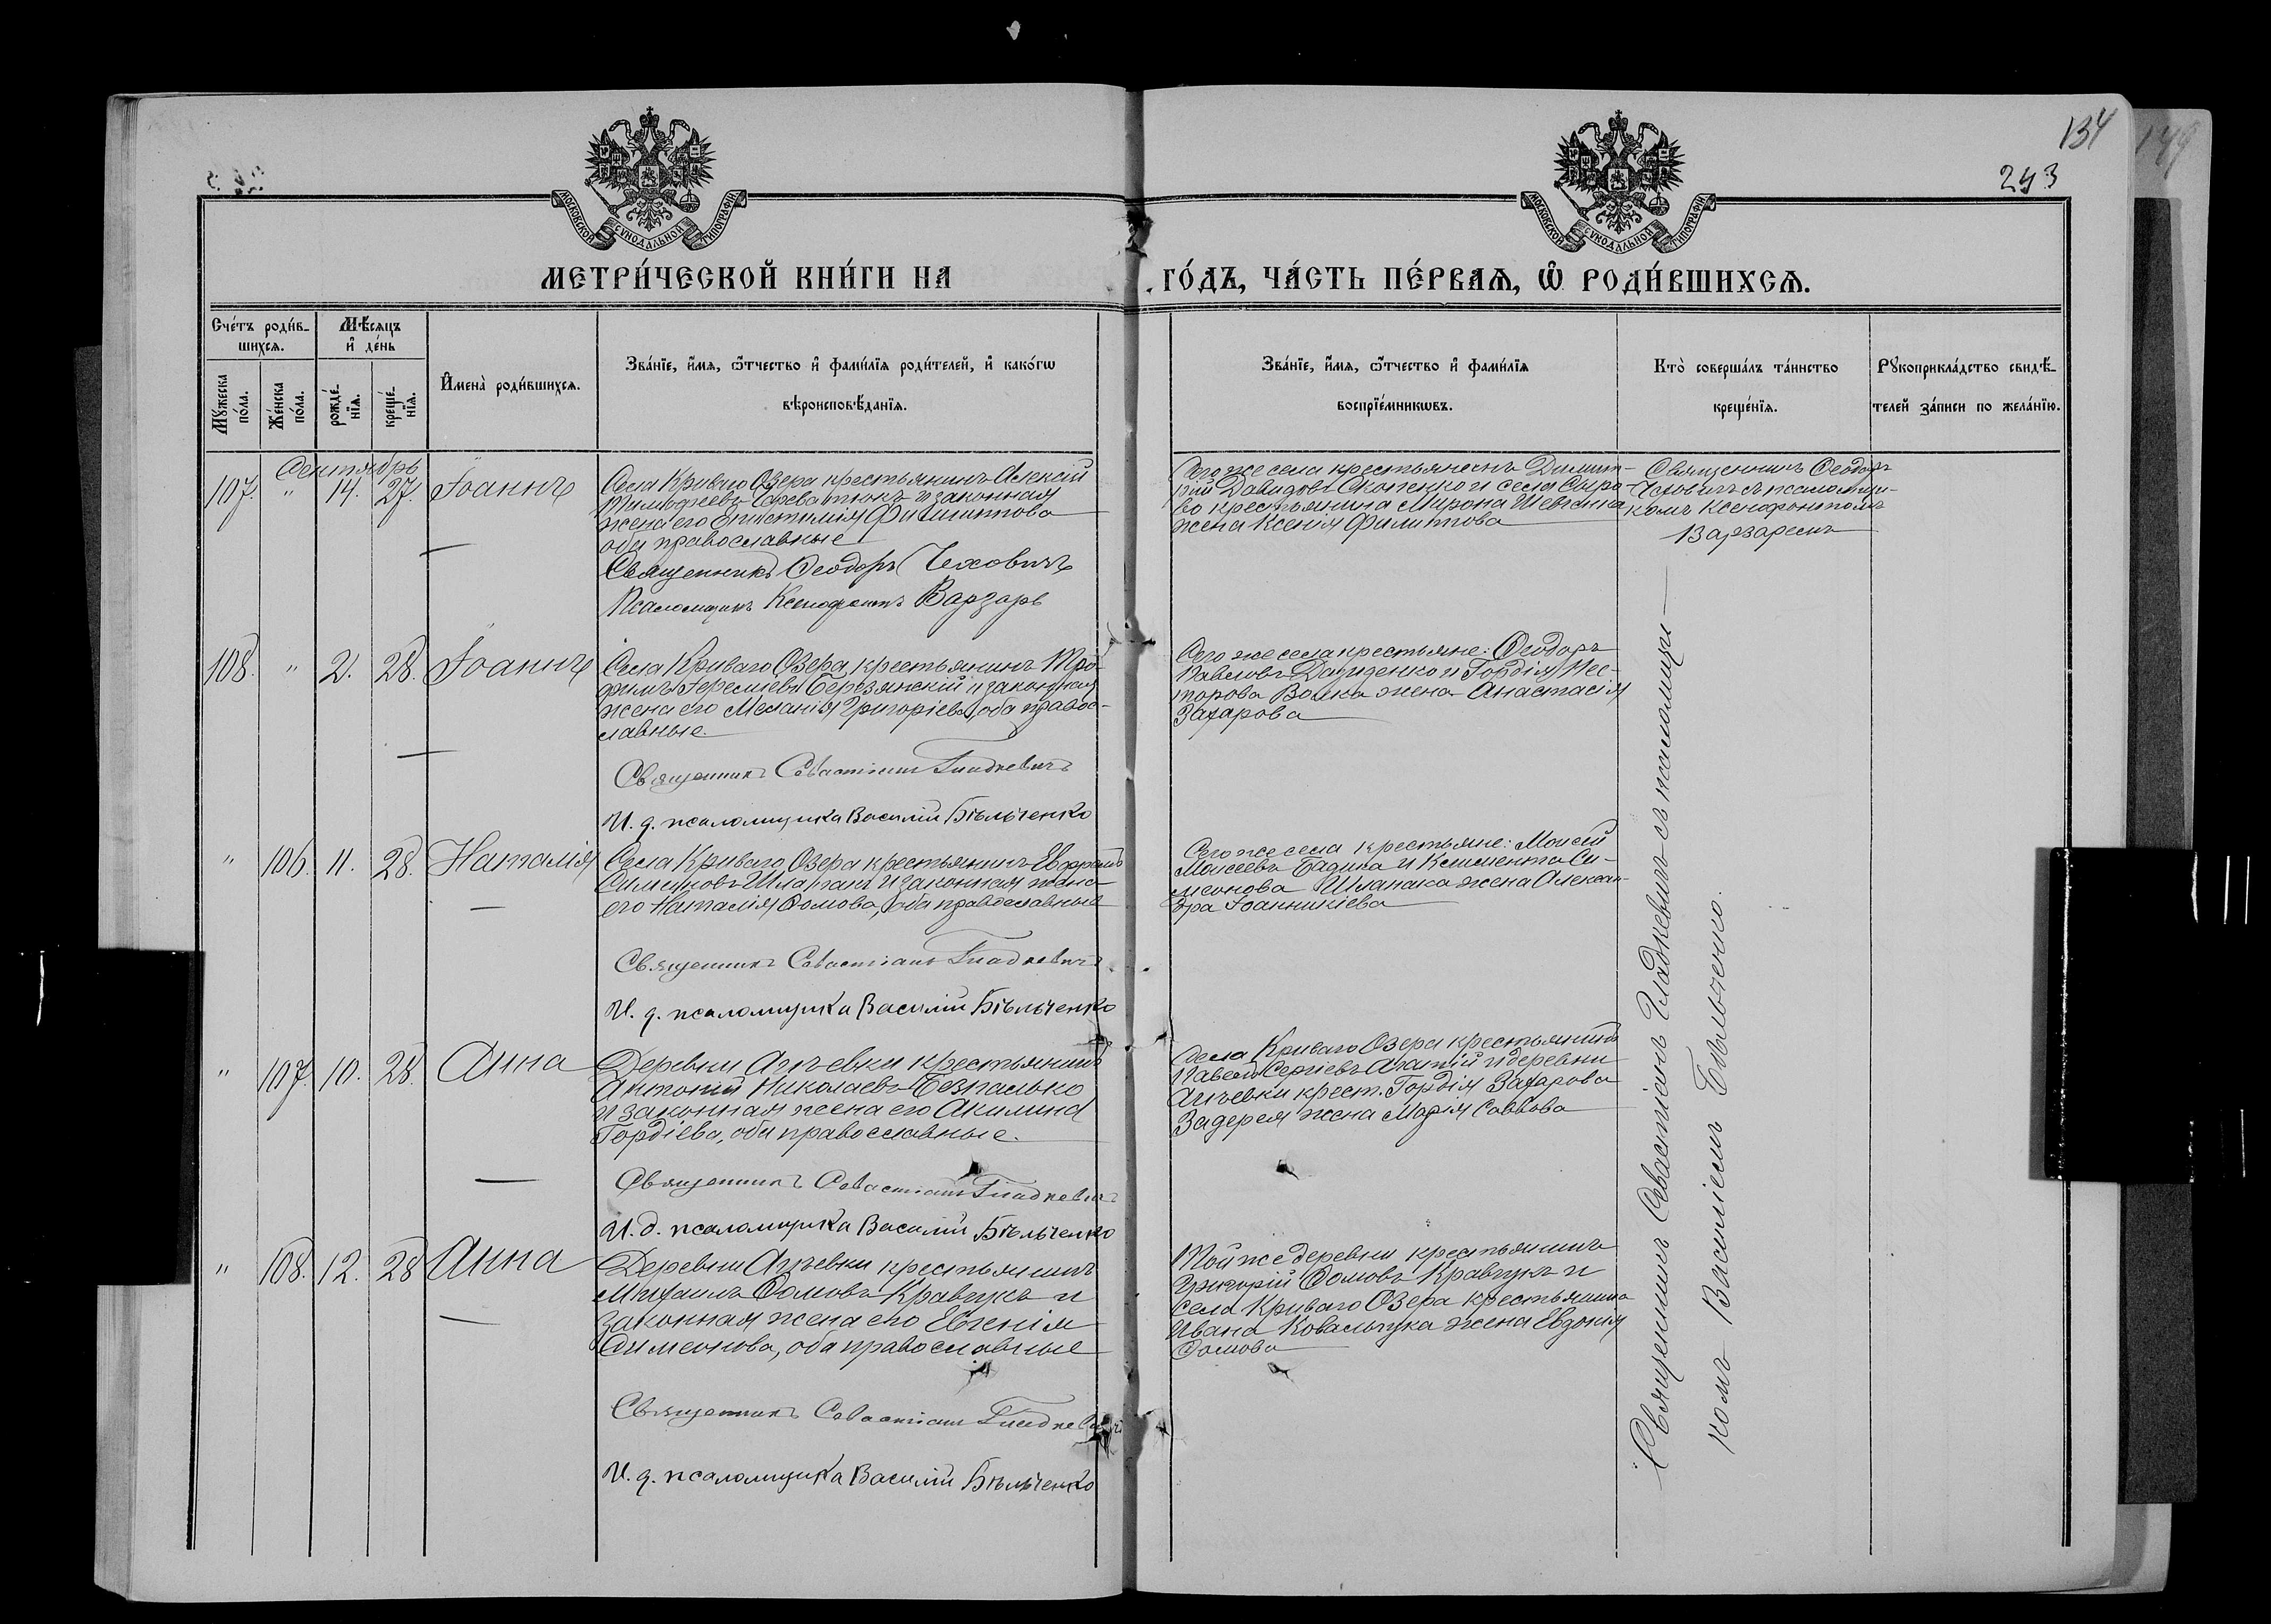 134
149
293
МОСКОВСКОЙ СУНОДАЛЬНОЙ ТИПОГРАФІИ
МОСКОВСКОЙ СУНОДАЛЬНОЙ ТИПОГРАФІИ
МЕТРИ́ЧЕСКОЙ КНИ́ГИ НА
ГО́ДЪ, ЧА́СТЬ ПЕ́РВАѦ, Ѡ РОДИ́ВШИХСѦ.
Сче́тъ роди́в-
шихсѧ.
Мꙋ́жеска
по́ла.
Же́нска
по́ла.
Мѣ́сѧцъ
и҆ де́нь
рожде́-
нїѧ.
креще́-
нїѧ.
И҆мена̀ роди́вшихсѧ.
Зва́нїе, и҆́мѧ, ѻ҆́тчество и҆ фами́лїѧ роди́телей, и҆ како́гѡ
вѣроисповѣ́данїѧ.
Зва́нїе, и҆́мѧ, ѻ҆́тчество и҆ фами́лїѧ
воспрїе́мникѡвъ.
Кто̀ соверша́лъ та́инство
креще́нїѧ.
Рꙋкоприкла́дство свидѣ́-
телей за́писи по жела́нїю.
Сентябрь
107. " 14. 27. Іоаннъ
Села Криваго Озера крестьянинъ Алексій
Тимофеевъ и законная
жена его Епистимія Филиппова
оба православные
Священникъ Ѳеодоръ Чеховичъ
Псаломщикъ Ксенофонтъ Варзаръ
Сего же села крестьянинъ Димит-
рій Давидовъ Скопенко и села Сыро-
во крестьянина Мирона Шевченка
жена Ксенія Филиппова
Священникъ Ѳеодоръ
Чеховичъ съ псаломщи-
комъ Ксенофонтомъ
Варзаремъ
108. " 2. 28. Іоаннъ
Села Криваго Озера крестьянинъ Тро-
фимъ Іереміевъ Березянскій и законная
жена его Меланія Григоріева, оба правос-
лавные.
Священникъ Севастіанъ Гладкевичъ
И. д. псаломщика Василій Бѣльченко
Сего же села крестьяне: Ѳеодоръ
Павловъ Даниденко и Гордія Нес-
торова Вовка жена Анастасія
Захарова
" 106. 11. 28. Наталія
Села Криваго Озера крестьянинъ
Симеоновъ Шлапакъ и законная жена
его Наталія Ѳомова, оба православные
Священникъ Севастіанъ Гладкевичъ
И. д. псаломщика Василій Бѣльченко
Сего же села крестьяне: Моисей
Моисеевъ и Климента Си-
меонова Шлапака жена Алексан-
дра Іоанникіева
" 107. 10. 28. Анна
Деревни крестьянинъ
Антоній Николаевъ Безпалько
и законная жена его Акилина
Гордіева, оба православные.
Священникъ Севастіанъ Гладкевичъ
И. д. псаломщика Василій Бѣльченко
Села Криваго Озера крестьянинъ
Павелъ Сергіевъ и деревни
крест. Гордія Захарова
Задерея жена Марія Саввова
" 108. 12. 28 Анна
Деревни крестьянинъ
Михаилъ Ѳомовъ Кравчукъ и
законная жена его Евгенія
Симеонова, оба православные
Священникъ Севастіанъ Гладкевичъ
И. д. псаломщика Василій Бѣльченко
Той же деревни крестьянинъ
Григорій Ѳомовъ Кравчукъ и
села Криваго Озера крестьянина
Ивана Ковальчука жена Евдокія
Ѳомова
Священникъ Севастіанъ Гладкевичъ съ псаломщи-
комъ Василіемъ Бѣльченко.